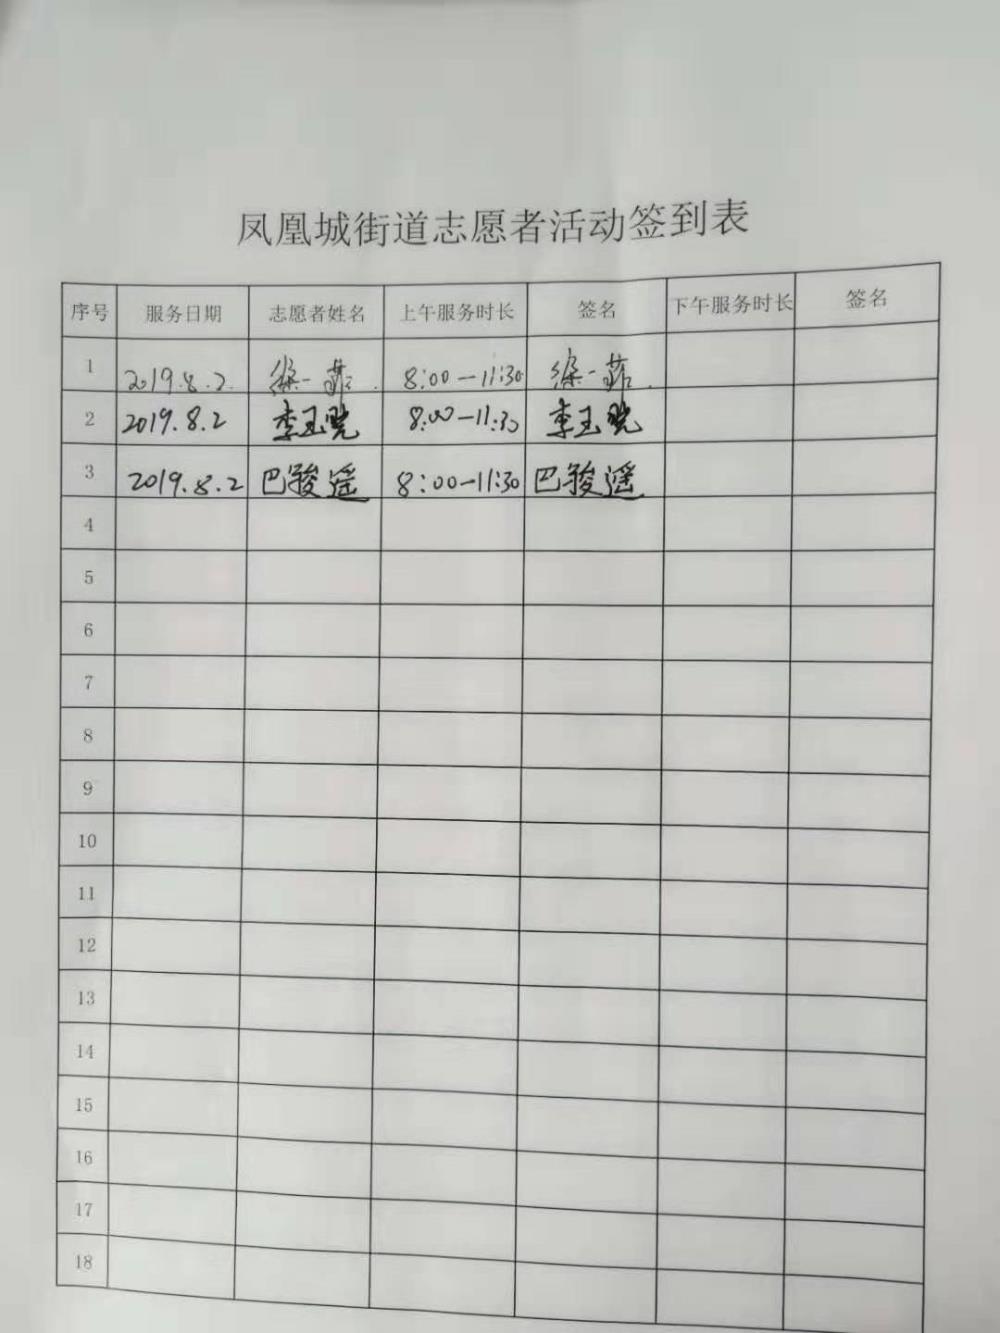 凤凰城街道志愿者活动签到表
序号 服务日期 志愿者姓名 上午服务时长 签名 下午服务时长 签名
1 2019.8.2. 徐一茹. 8:00—11:30 徐一茹.
2 2019.8.2 李玉晓 8:00—11:30 李玉晓
3 2019.8.2 巴骏遥 8:00—11:30 巴骏遥
4
5
6
7
8
9
10
11
12
13
14
15
16
17
18